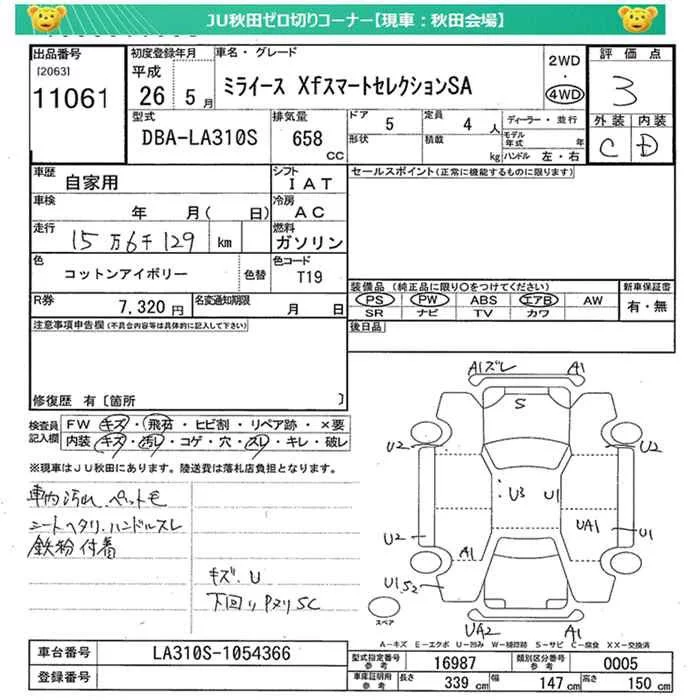 JU秋田ゼロ切りコーナー【現車：秋田会場】
出品番号 初度登録年月 車名・グレード 2WD 評価点
[2063] 平成 ・
11061 26年 5月 ミライース XfスマートセレクションSA 4WD 3
型式 排気量 ドア 5 定員 4人 ディーラー・並行 外装 内装
DBA-LA310S 658 CC 形状 積載 kg モデル年式 年 C D
ハンドル 左・右
車歴 自家用 シフト IAT セールスポイント(正常に機能するものに限ります)
車検 年 月( 日) 冷房 AC
走行 15万6千129 km 燃料 ガソリン
色 コットンアイボリー 色替 色コード T19
装備品 (純正品に限り○をつけてください) 新車保証書
R券 7,320円 名変通知期限 月 日 PS PW ABS エアB AW 有・無
SR ナビ TV カワ
注意事項申告欄(不具合内容等は具体的に記入して下さい) 後日品
修復歴 有〔箇所 〕
検査員記入欄 FW キズ・飛石・ヒビ割・リペア跡・×要
内装 キズ・汚レ・コゲ・穴・スレ・キレ・破レ
※現車はJU秋田にあります。陸送費は落札店負担となります。
車内汚れ.ペット毛
シートヘタリ.ハンドルスレ
鉄粉付着
キズ.U
下回りPヌリSC
A1ズレ A1
S
U2 U2
U3 U1
UA1 U1
U2
A1
U1 S2
スペア
UA2 A1
A-キズ E-エクボ U-凹み W-補修跡 S-サビ C-腐食 XX-交換済
車台番号 LA310S-1054366 型式指定番号 参考 16987 類別区分番号 参考 0005
登録番号 車庫証明用 参考 長さ 339 cm 幅 147 cm 高さ 150 cm